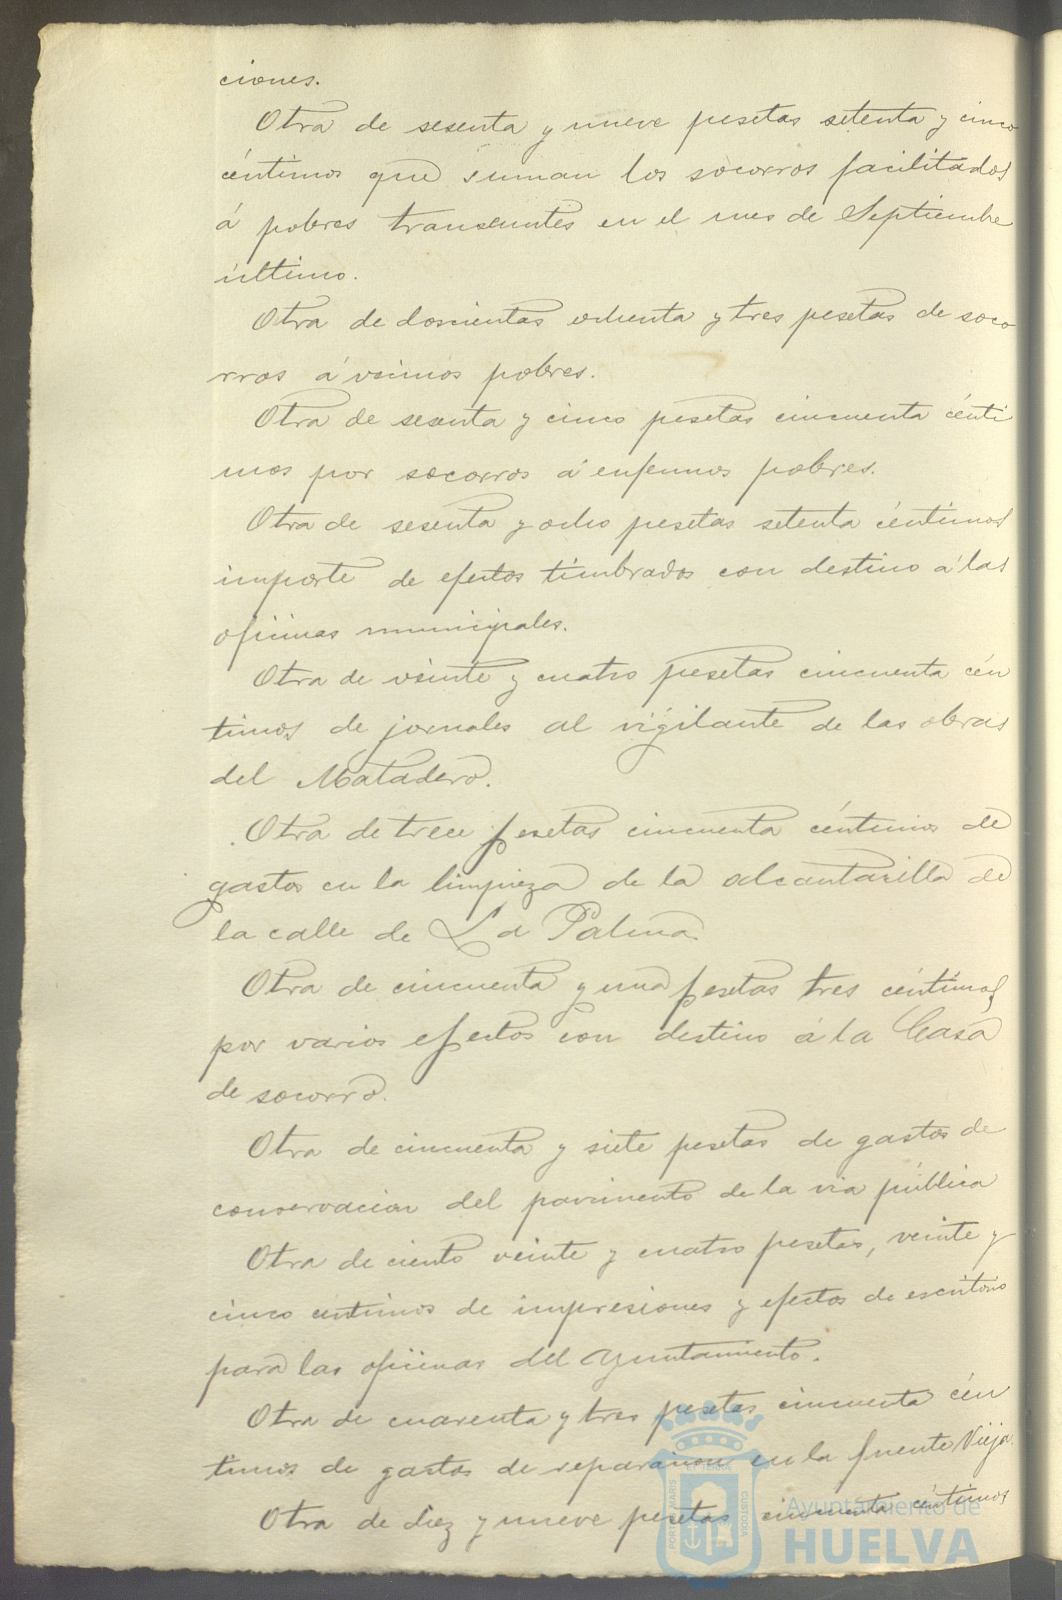 ciones.
Otra de sesenta y nueve pesetas setenta y cinco
céntimos que suman los socorros facilitados
á pobres transeuntes en el mes de Septiembre
último.
Otra de doscientas ochenta y tres pesetas de soco
rros á vecinos pobres.
Otra de sesenta y cinco pesetas cincuenta cénti
mos por socorros á enfermos pobres.
Otra de sesenta y ocho pesetas setenta céntimos
importe de efectos timbrados con destino á las
oficinas municipales.
Otra de veinte y cuatro pesetas cincuenta cén
timos de jornales al vigilante de las obras
del Matadero.
Otra de trece pesetas cincuenta céntimos de
gastos en la limpieza de la alcantarilla de
la calle de La Palma.
Otra de cincuenta y una pesetas tres céntimos
por varios efectos con destino á la Casa
de socorro.
Otra de cincuenta y siete pesetas de gastos de
conservacion del pavimento de la via pública
Otra de ciento veinte y cuatro pesetas, veinte y
cinco céntimos de impresiones y efectos de escritorio
para las oficinas del Ayuntamiento.
Otra de cuarenta y tres pesetas cincuenta cén
timos de gastos de reparacion en la fuente Vieja.
Otra de diez y nueve pesetas cincuenta céntimos
PORTUS MARIS ET TERRAE CUSTODIA
Ayuntamiento de
HUELVA